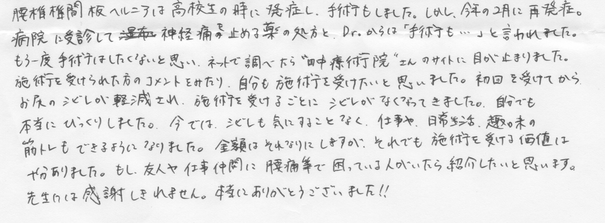 腰椎椎間板ヘルニアは高校生の時に発症し、手術もしました。しかし、今年の2月に再発症。
病院に受診して神経痛を止める薬の処方と、Dr.からは「手術も…」と言われました。
もう一度手術はしたくないと思い、ネットで調べたら"田中療術院"さんのサイトに目が止まりました。
施術を受けられた方のコメントをみたり、自分も施術を受けたいと思いました。初回を受けてから
お尻のシビレが軽減され、施術を受けるごとにシビレがなくなってきました。自分でも
本当にびっくりしました。今では、シビレも気にすることなく、仕事や、日常生活、趣味の
筋トレもできるようになりました。金額はそれなりにしますが、それでも施術を受ける価値は
ありました。もし、友人や仕事仲間に腰痛等で困っている人がいたら紹介したいと思います。
先生には感謝しきれません。本当にありがとうございました!!